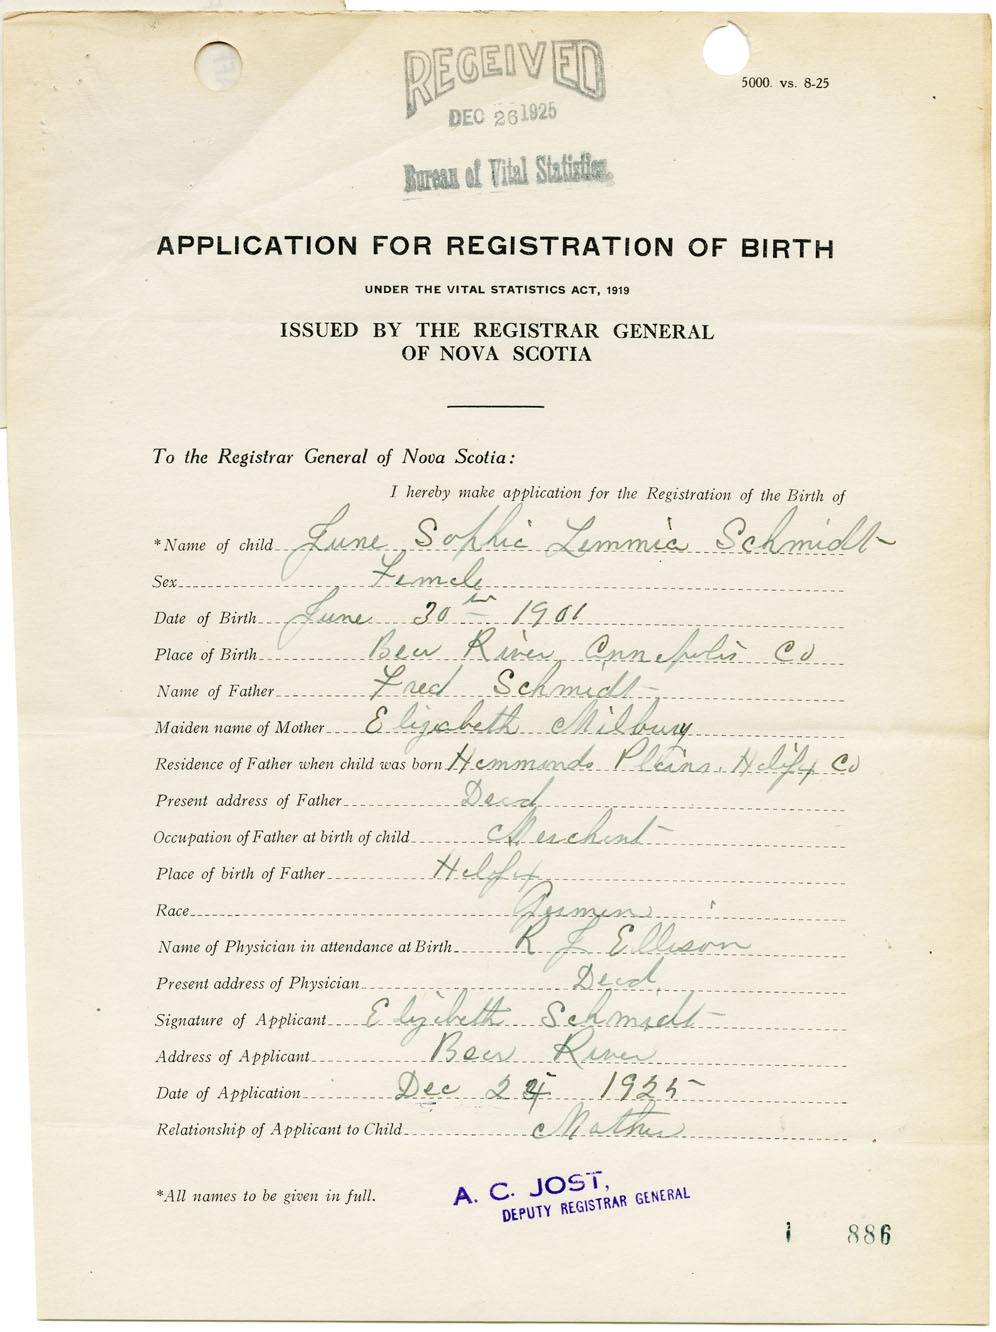 RECEIVED
DEC 26 1925
Bureau of Vital Statistics.
5000. vs. 8-25
APPLICATION FOR REGISTRATION OF BIRTH
UNDER THE VITAL STATISTICS ACT, 1919
ISSUED BY THE REGISTRAR GENERAL
OF NOVA SCOTIA
To the Registrar General of Nova Scotia:
I hereby make application for the Registration of the Birth of
*Name of child June Sophie Lemmia Schmidt
Sex Female
Date of Birth June 30th 1901
Place of Birth Bear River Annapolis Co
Name of Father Fred Schmidt
Maiden name of Mother Elizabeth Milbury
Residence of Father when child was born Hammonds Plains. Halifx Co
Present address of Father Dead
Occupation of Father at birth of child Merchant
Place of birth of Father Halifx
Race German
Name of Physician in attendance at Birth R J Ellison
Present address of Physician Dead
Signature of Applicant Elizabeth Schmidt
Address of Applicant Bear River
Date of Application Dec 24 1925
Relationship of Applicant to Child Mother
*All names to be given in full.
A. C. JOST,
DEPUTY REGISTRAR GENERAL
1 886